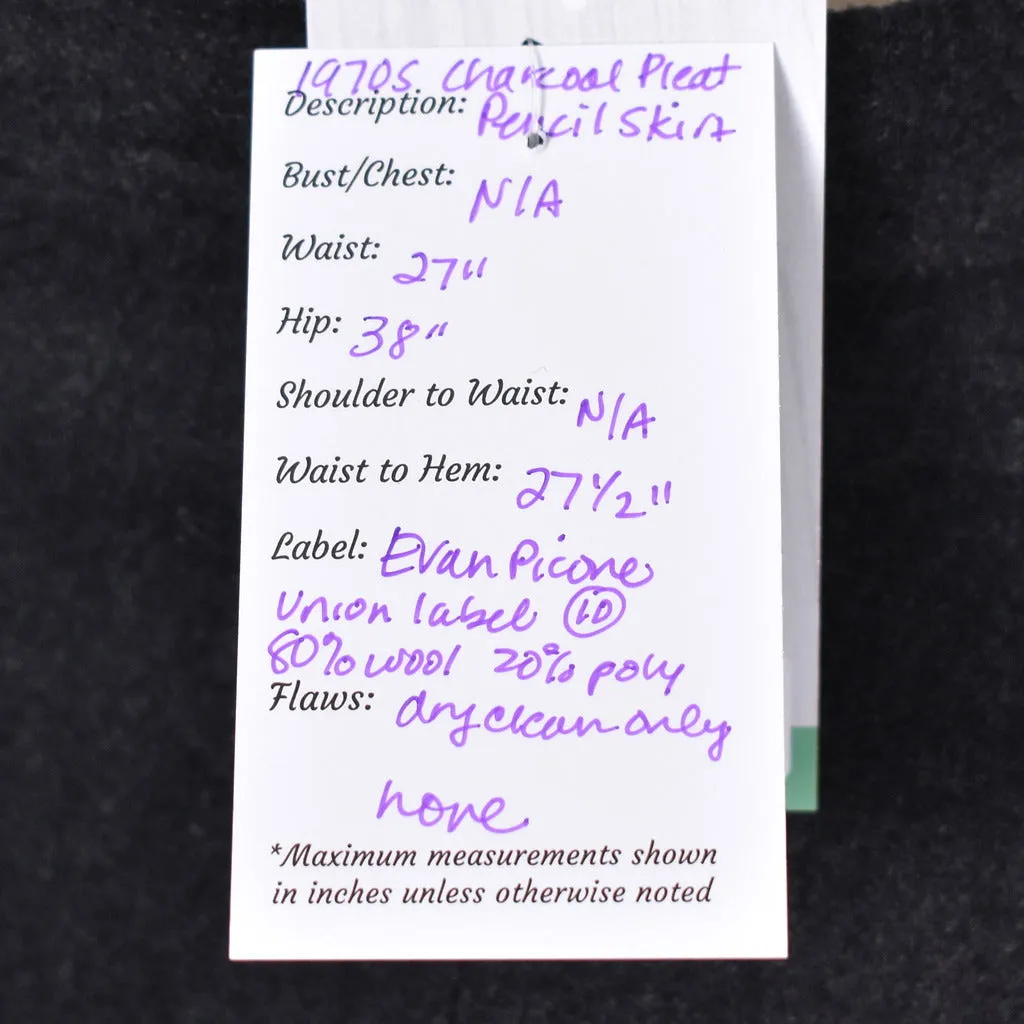 1970s Charcoal Pleat
Description: Pencil Skirt
Bust/Chest: N/A
Waist: 27"
Hip: 38"
Shoulder to Waist: N/A
Waist to Hem: 27 1/2"
Label: Evan Picone
Union label 10
80% wool 20% poly
Flaws: dry clean only
none
*Maximum measurements shown
in inches unless otherwise noted